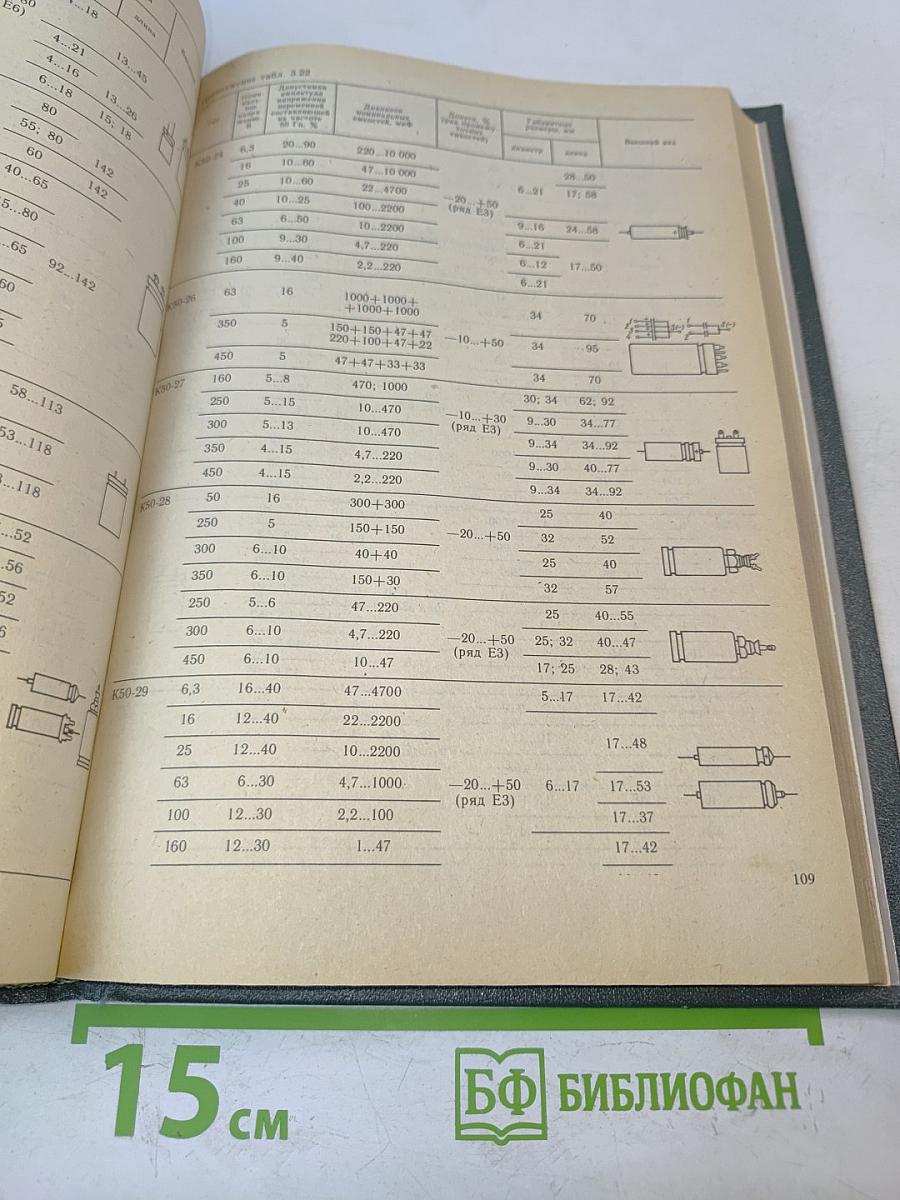 длина
4...18
Е6)
4...21
13...45
4...16
6...18
13...26
80
15; 18
55; 80
142
60
142
40...65
5...80
...65
92...142
60
58...113
53...118
...118
...52
...56
52
табл. 3.22
Допустимая амплитуда напряжения переменной составляющей на частоте 50 Гц, %
Диапазон номинальных емкостей, мкФ
Допуск, %
Габаритные размеры, мм
диаметр
длина
Внешний вид
К50-24 6,3 20...90 220...10 000
16 10...60 47...10 000 28...50
25 10...60 22...4700 6...21 17; 58
40 10...25 100...2200 —20...+50
63 6...50 10...2200 (ряд Е3) 9...16 24...58
100 9...30 4,7...220 6...21
160 9...40 2,2...220 6...12 17...50
6...21
К50-26 63 16 1000+1000+
+1000+1000 34 70
350 5 150+150+47+47
220+100+47+22 —10...+50 34 95
450 5 47+47+33+33 34 70
К50-27 160 5...8 470; 1000 30; 34 62; 92
250 5...15 10...470 —10...+30 9...30 34...77
300 5...13 10...470 (ряд Е3) 9...34 34...92
350 4...15 4,7...220 9...30 40...77
450 4...15 2,2...220 9...34 34...92
К50-28 50 16 300+300 25 40
250 5 150+150 —20...+50 32 52
300 6...10 40+40 25 40
350 6...10 150+30 32 57
250 5...6 47...220 25 40...55
300 6...10 4,7...220 —20...+50 25; 32 40...47
450 6...10 10...47 (ряд Е3) 17; 25 28; 43
К50-29 6,3 16...40 47...4700 5...17 17...42
16 12...40 22...2200 17...48
25 12...40 10...2200
63 6...30 4,7...1000 —20...+50 6...17 17...53
100 12...30 2,2...100 (ряд Е3) 17...37
160 12...30 1...47 17...42
109
15 см
БФ БИБЛИОФАН